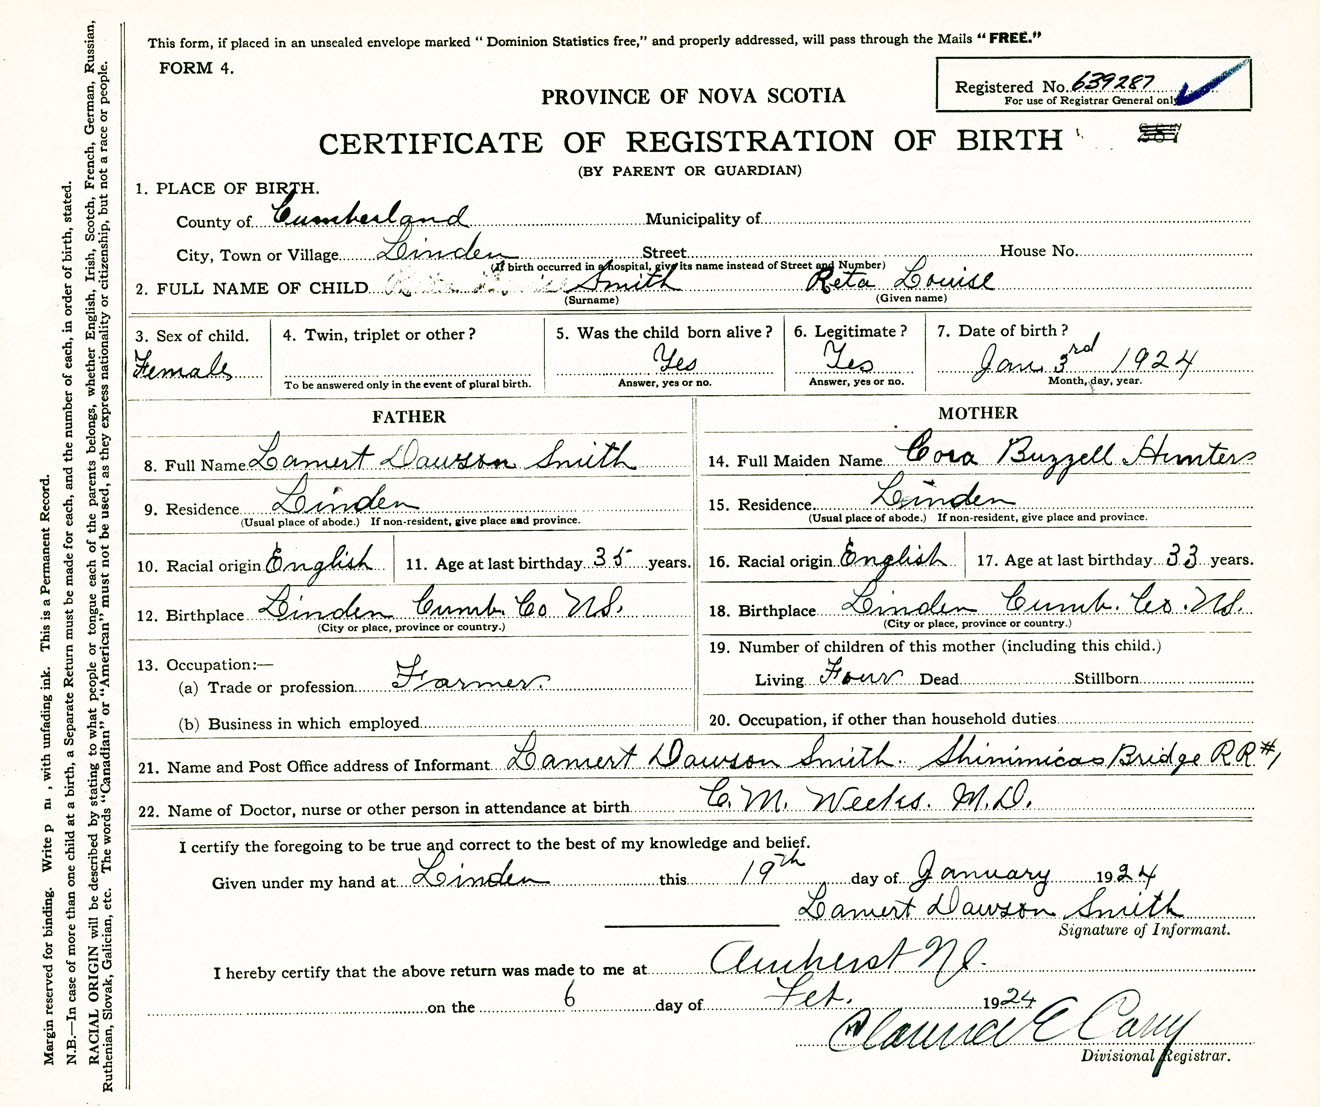 This form, if placed in an unsealed envelope marked “ Dominion Statistics free,” and properly addressed, will pass through the Mails “ FREE.”
FORM 4.
Registered No. 639287
For use of Registrar General only
PROVINCE OF NOVA SCOTIA
CERTIFICATE OF REGISTRATION OF BIRTH
(BY PARENT OR GUARDIAN)
1. PLACE OF BIRTH.
County of Cumberland Municipality of
City, Town or Village Linden Street House No.
(If birth occurred in a hospital, give its name instead of Street and Number)
2. FULL NAME OF CHILD Smith Reta Louise
(Surname) (Given name)
3. Sex of child. 4. Twin, triplet or other ? 5. Was the child born alive ? 6. Legitimate ? 7. Date of birth ?
Female Yes Yes Jan. 3rd 1924
To be answered only in the event of plural birth. Answer, yes or no. Answer, yes or no. Month, day, year.
FATHER MOTHER
8. Full Name Lamert Dawson Smith 14. Full Maiden Name Cora Buzzell Hunter
9. Residence Linden 15. Residence Linden
(Usual place of abode.) If non-resident, give place and province. (Usual place of abode.) If non-resident, give place and province.
10. Racial origin English 11. Age at last birthday 35 years. 16. Racial origin English 17. Age at last birthday 33 years.
12. Birthplace Linden Cumb. Co N.S. 18. Birthplace Linden Cumb. Co. N.S.
(City or place, province or country.) (City or place, province or country.)
13. Occupation:— 19. Number of children of this mother (including this child.)
(a) Trade or profession Farmer. Living Four Dead Stillborn
(b) Business in which employed 20. Occupation, if other than household duties
21. Name and Post Office address of Informant Lamert Dawson Smith. Shinimicas Bridge R R #1
22. Name of Doctor, nurse or other person in attendance at birth C. M. Weeks. M.D.
I certify the foregoing to be true and correct to the best of my knowledge and belief.
Given under my hand at Linden this 19th day of January 1924
Lamert Dawson Smith
Signature of Informant.
I hereby certify that the above return was made to me at Amherst NS.
on the 6 day of Feb. 1924
Clarence E
Divisional Registrar.
Margin reserved for binding. Write p n , with unfading ink. This is a Permanent Record.
N.B.—In case of more than one child at a birth, a Separate Return must be made for each, and the number of each, in order of birth, stated.
RACIAL ORIGIN will be described by stating to what people or tongue each of the parents belongs, whether English, Irish, Scotch, French, German, Russian,
Ruthenian, Slovak, Galician, etc. The words “Canadian” or “American” must not be used, as they express nationality or citizenship, but not a race or people.